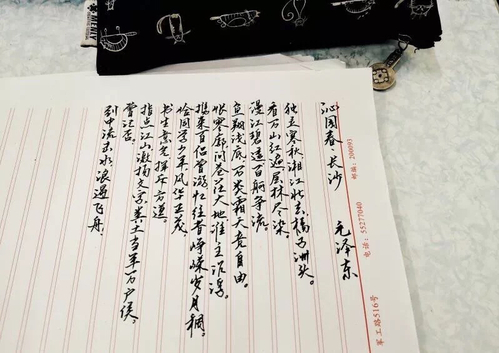 沁园春·长沙
毛泽东
独立寒秋,湘江北去,橘子洲头。
看万山红遍层林尽染。
漫江碧透百舸争流
鱼翔浅底万类霜天竞自由。
怅寥廓问苍茫大地谁主沉浮。
携来百侣曾游忆往昔峥嵘岁月稠
恰同学少年风华正茂
书生意气挥斥方遒。
指点江山激扬文字粪土当年万户侯,
曾记否,
到中流击水浪遏飞舟。
军工路516号 电话:55277040 邮编:200093